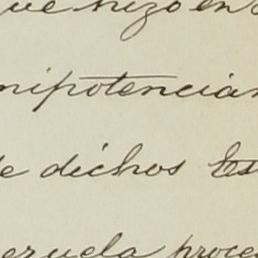 ue hizo en
nipotencia
e dichos Es
ezuela proce